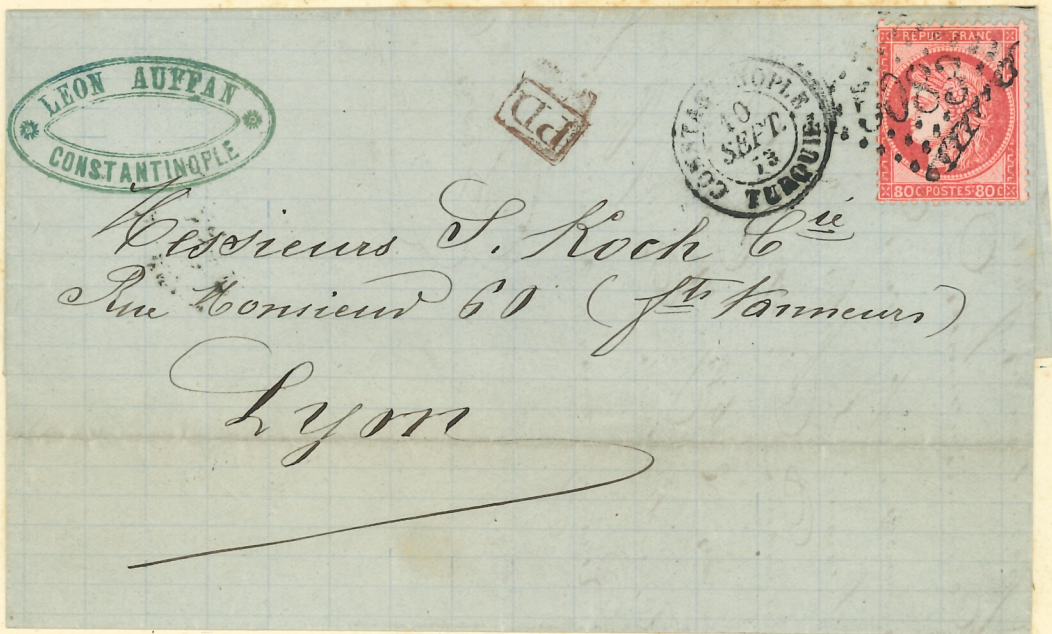 LEON AUFFAN
CONSTANTINOPLE
PD
CONSTANTINOPLE
10
SEPT.
73
TURQUIE
REPUB FRANC
80 C POSTES 80 C
Messieurs S. Koch Cie
Rue Monsieur 60 (fts Tanneurs)
Lyon